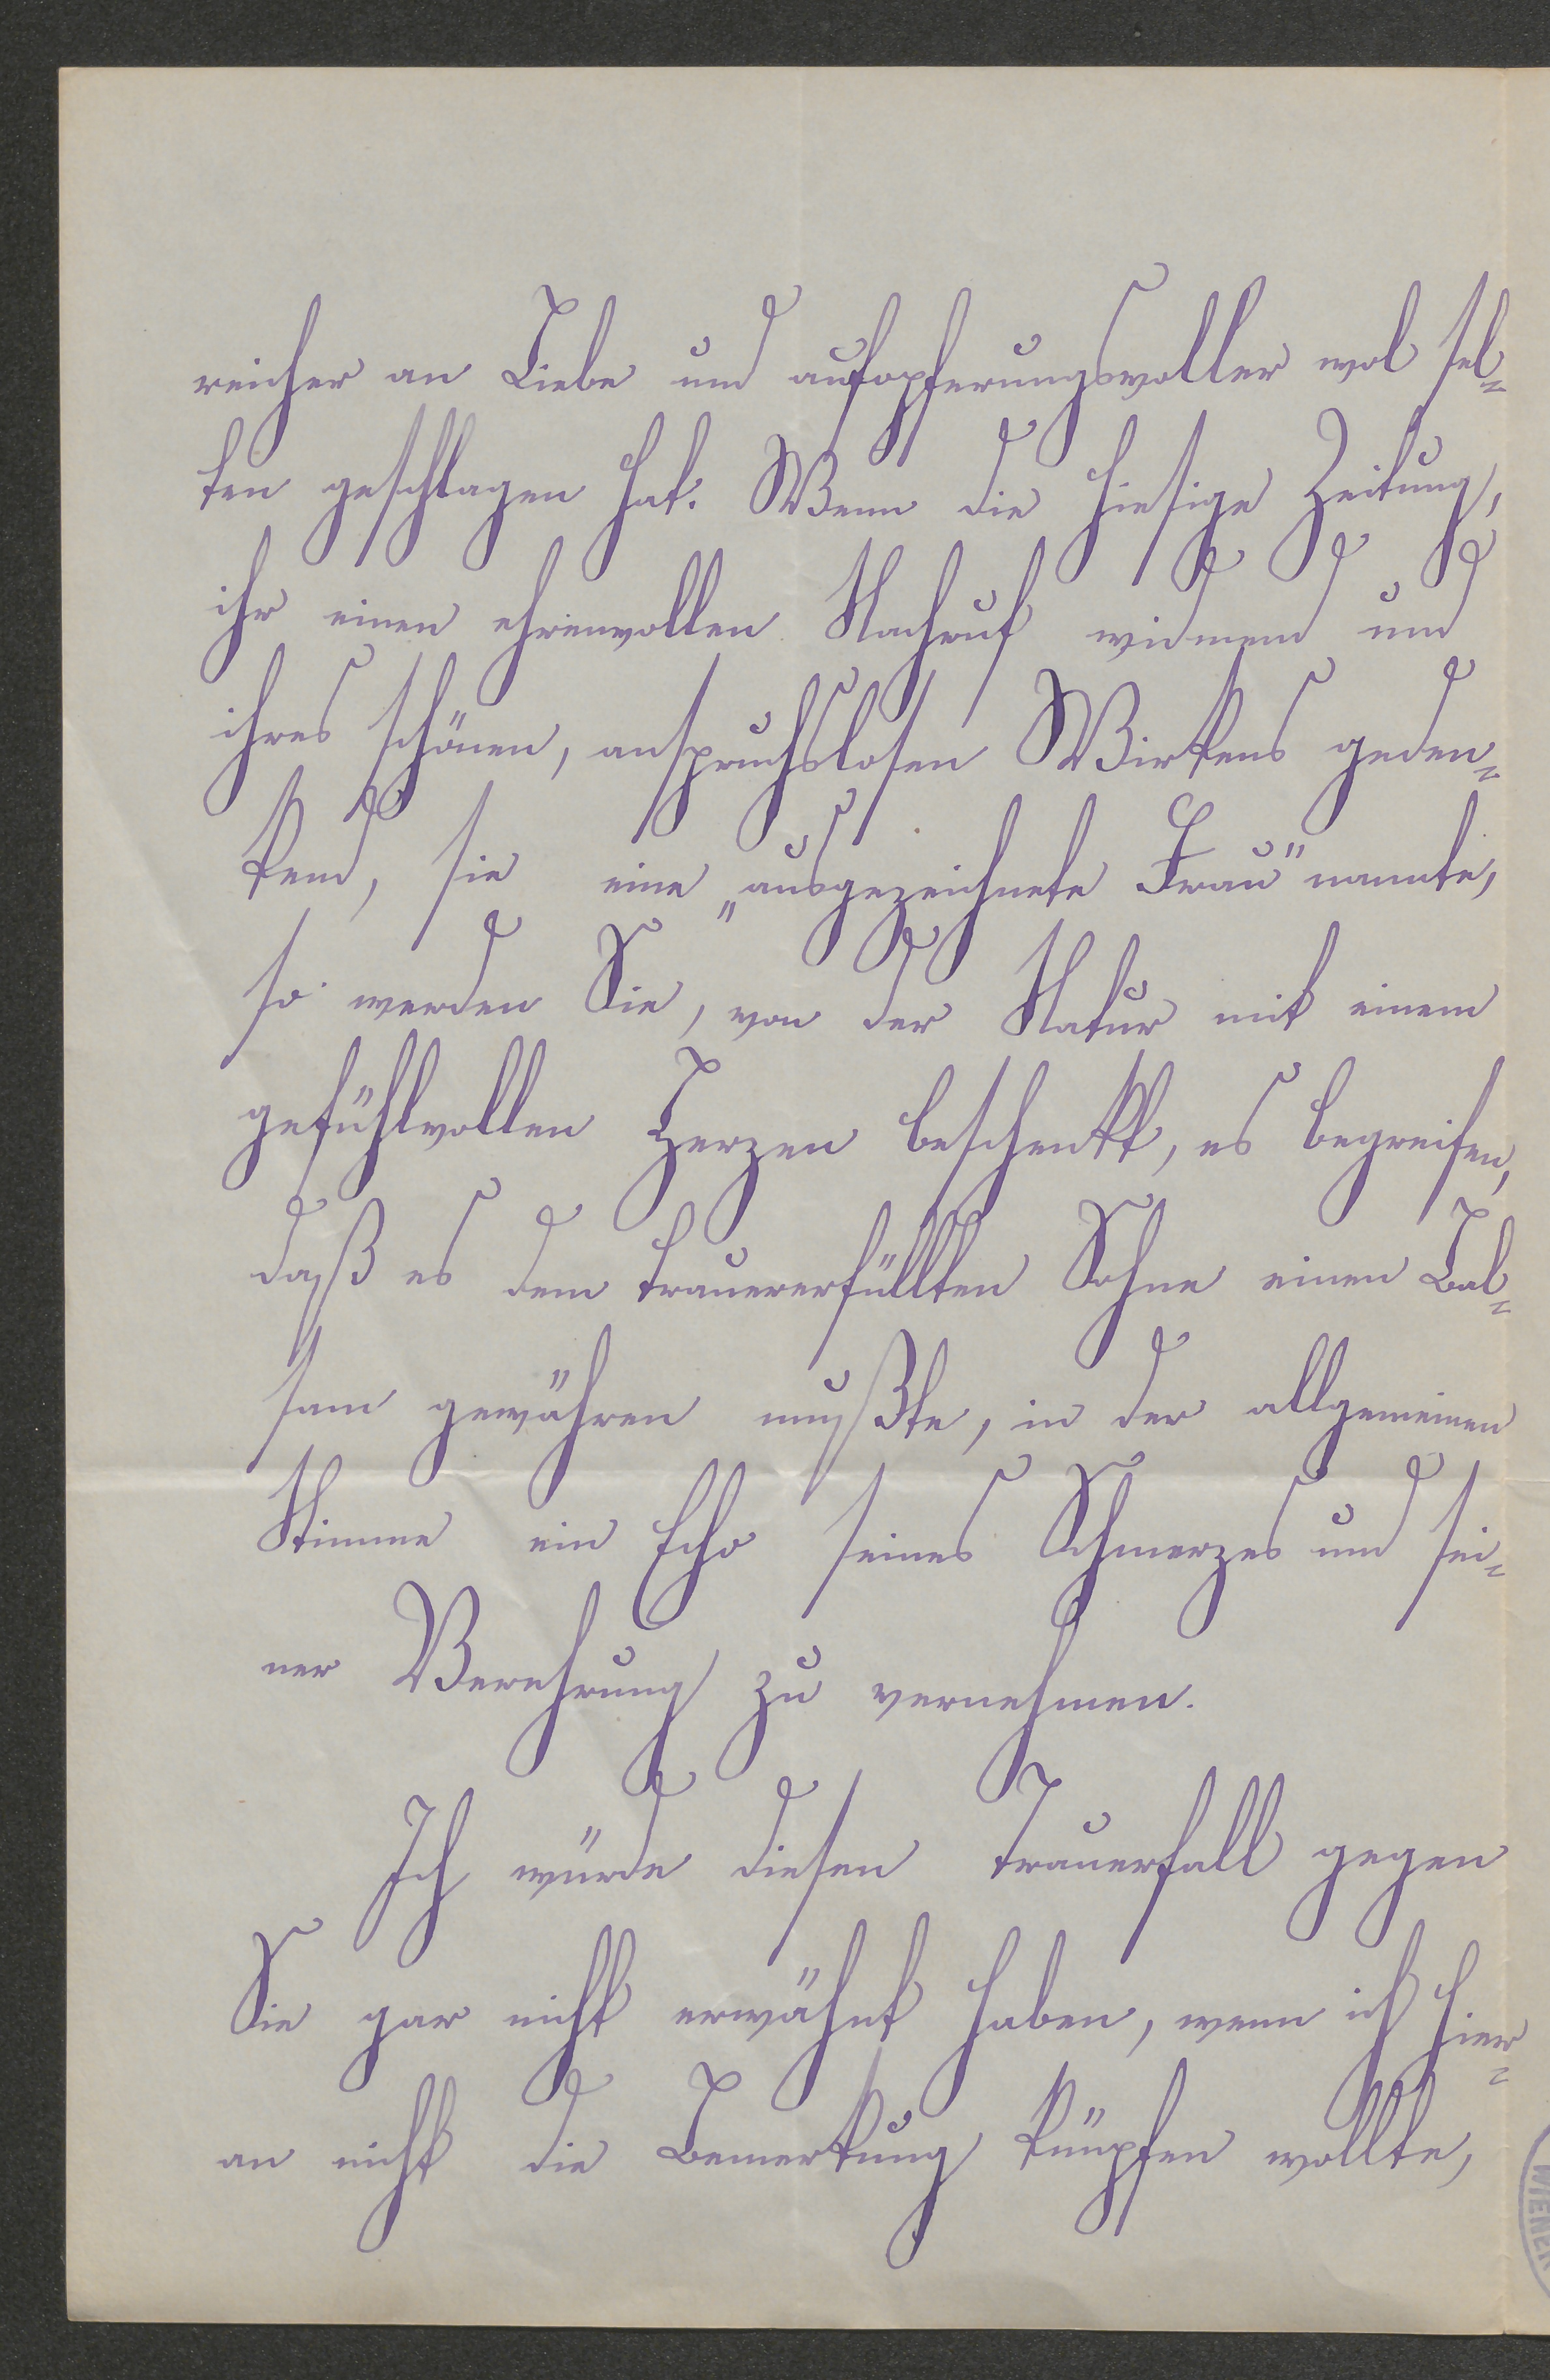 reicher an Liebe und aufopferungsvoller wol sel=
ten geschlagen hat. Wenn die hiesige Zeitung,
ihr einen ehrenvollen Nachruf widmend und
ihres schönen, anspruchslosen Wirkens geden=
kend, sie eine „ausgezeichnete Frau" nannte,
so werden Sie, von der Natur mit einem
gefühlvollen Herzen beschenkt, es begreifen,
daß es dem trauererfüllten Sohne einen Bal=
sam gewähren mußte, in der allgemeinen
Stimme ein Echo seines Schmerzes und sei=
ner Verehrung zu vernehmen.
Ich würde diesen Trauerfall gegen
Sie gar nicht erwähnt haben, wenn ich hier=
an nicht die Bemerkung knüpfen wollte,
WIENER